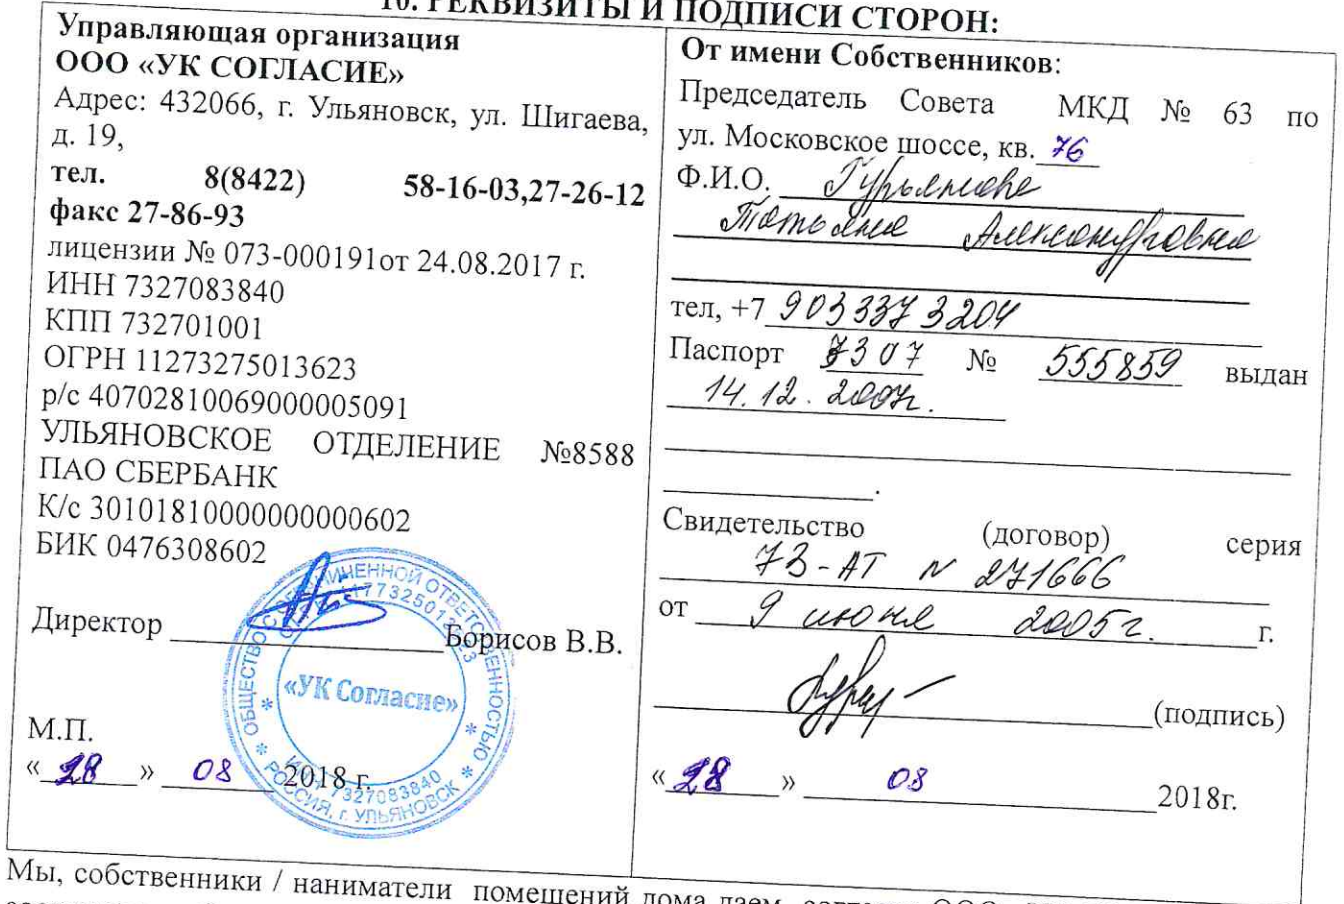 10. РЕКВИЗИТЫ И ПОДПИСИ СТОРОН:
Управляющая организация
ООО «УК СОГЛАСИЕ»
Адрес: 432066, г. Ульяновск, ул. Шигаева,
д. 19,
тел. 8(8422) 58-16-03,27-26-12
факс 27-86-93
лицензии № 073-000191от 24.08.2017 г.
ИНН 7327083840
КПП 732701001
ОГРН 11273275013623
р/с 40702810069000005091
УЛЬЯНОВСКОЕ ОТДЕЛЕНИЕ №8588
ПАО СБЕРБАНК
К/с 30101810000000000602
БИК 0476308602
Директор Борисов В.В.
ОБЩЕСТВО С ОГРАНИЧЕННОЙ ОТВЕТСТВЕННОСТЬЮ
«УК Согласие»
ИНН 7327083840
РОССИЯ, г. УЛЬЯНОВСК
М.П.
« 28 » 08 2018 г.
От имени Собственников:
Председатель Совета МКД № 63 по
ул. Московское шоссе, кв. 76
Ф.И.О. Гурьянова
Татьяна Александровна
тел, +7 903 337 3204
Паспорт 7307 № 555859 выдан
14.12.2007г.
Свидетельство (договор) серия
73-АТ N 271666
от 9 июня 2005г. г.
(подпись)
« 28 » 08 2018г.
Мы, собственники / наниматели помещений дома даем согласие ООО